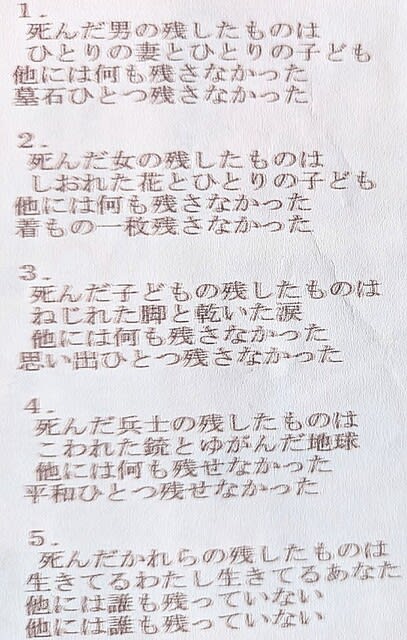 1.
死んだ男の残したものは
ひとりの妻とひとりの子ども
他には何も残さなかった
墓石ひとつ残さなかった
2.
死んだ女の残したものは
しおれた花とひとりの子ども
他には何も残さなかった
着もの一枚残さなかった
3.
死んだ子どもの残したものは
ねじれた脚と乾いた涙
他には何も残さなかった
思い出ひとつ残さなかった
4.
死んだ兵士の残したものは
こわれた銃とゆがんだ地球
他には何も残せなかった
平和ひとつ残せなかった
5.
死んだかれらの残したものは
生きてるわたし生きてるあなた
他には誰も残っていない
他には誰も残っていない